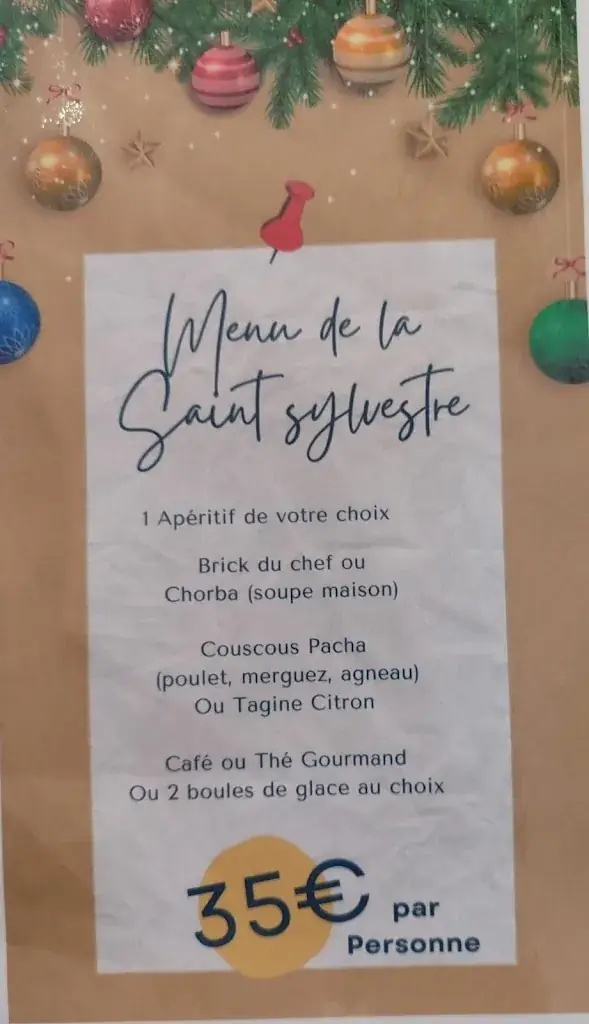 Menu de la
Saint sylvestre
1 Apéritif de votre choix
Brick du chef ou
Chorba (soupe maison)
Couscous Pacha
(poulet, merguez, agneau)
Ou Tagine Citron
Café ou Thé Gourmand
Ou 2 boules de glace au choix
35€ par
Personne